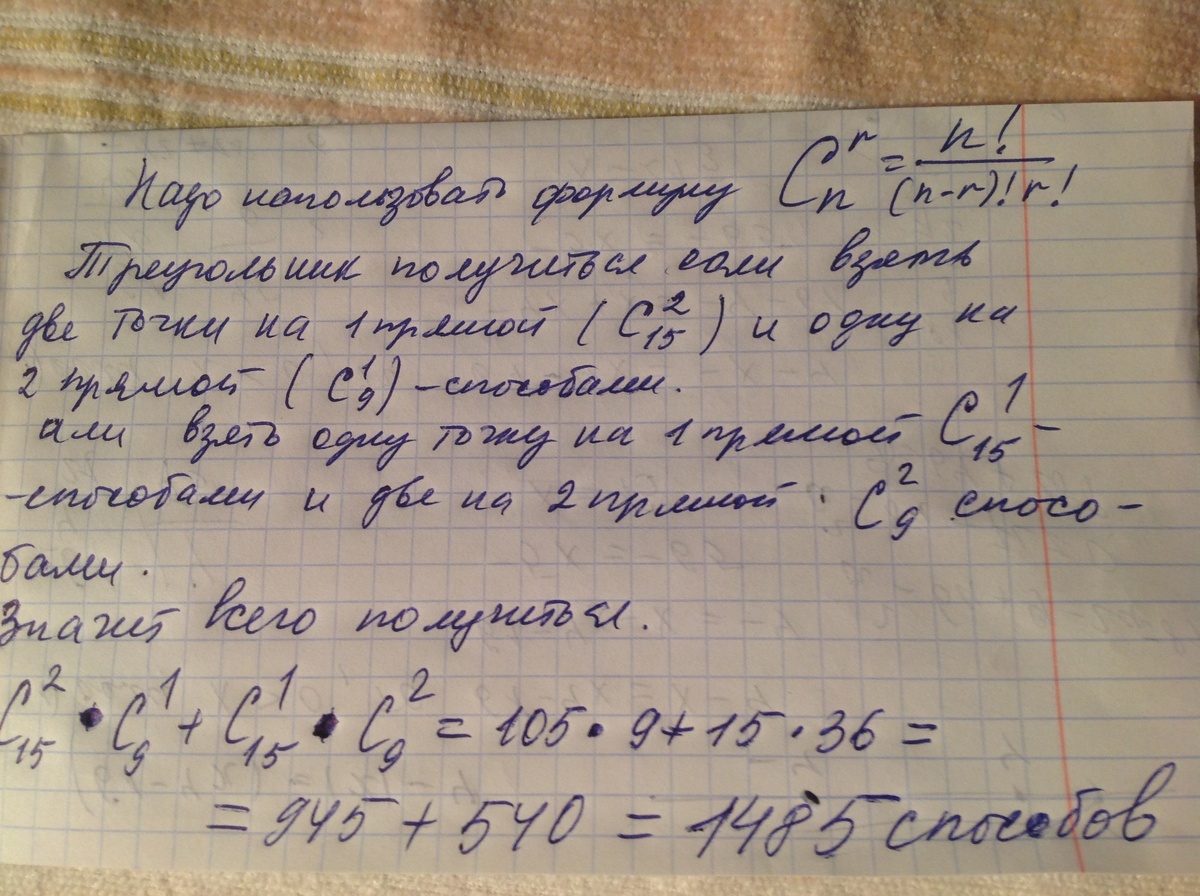 Надо использовать формулу C_n^r = n! / (n-r)! r!
Треугольник получиться если взять
две точки на 1 прямой (C_15^2) и одну на
2 прямой (C_9^1) - способами.
али взять одну точку на 1 прямой C_15^1 -
- способами и две на 2 прямой C_9^2 спосо-
бами.
Значит всего получиться.
C_15^2 • C_9^1 + C_15^1 • C_9^2 = 105 • 9 + 15 • 36 =
= 945 + 540 = 1485 способов